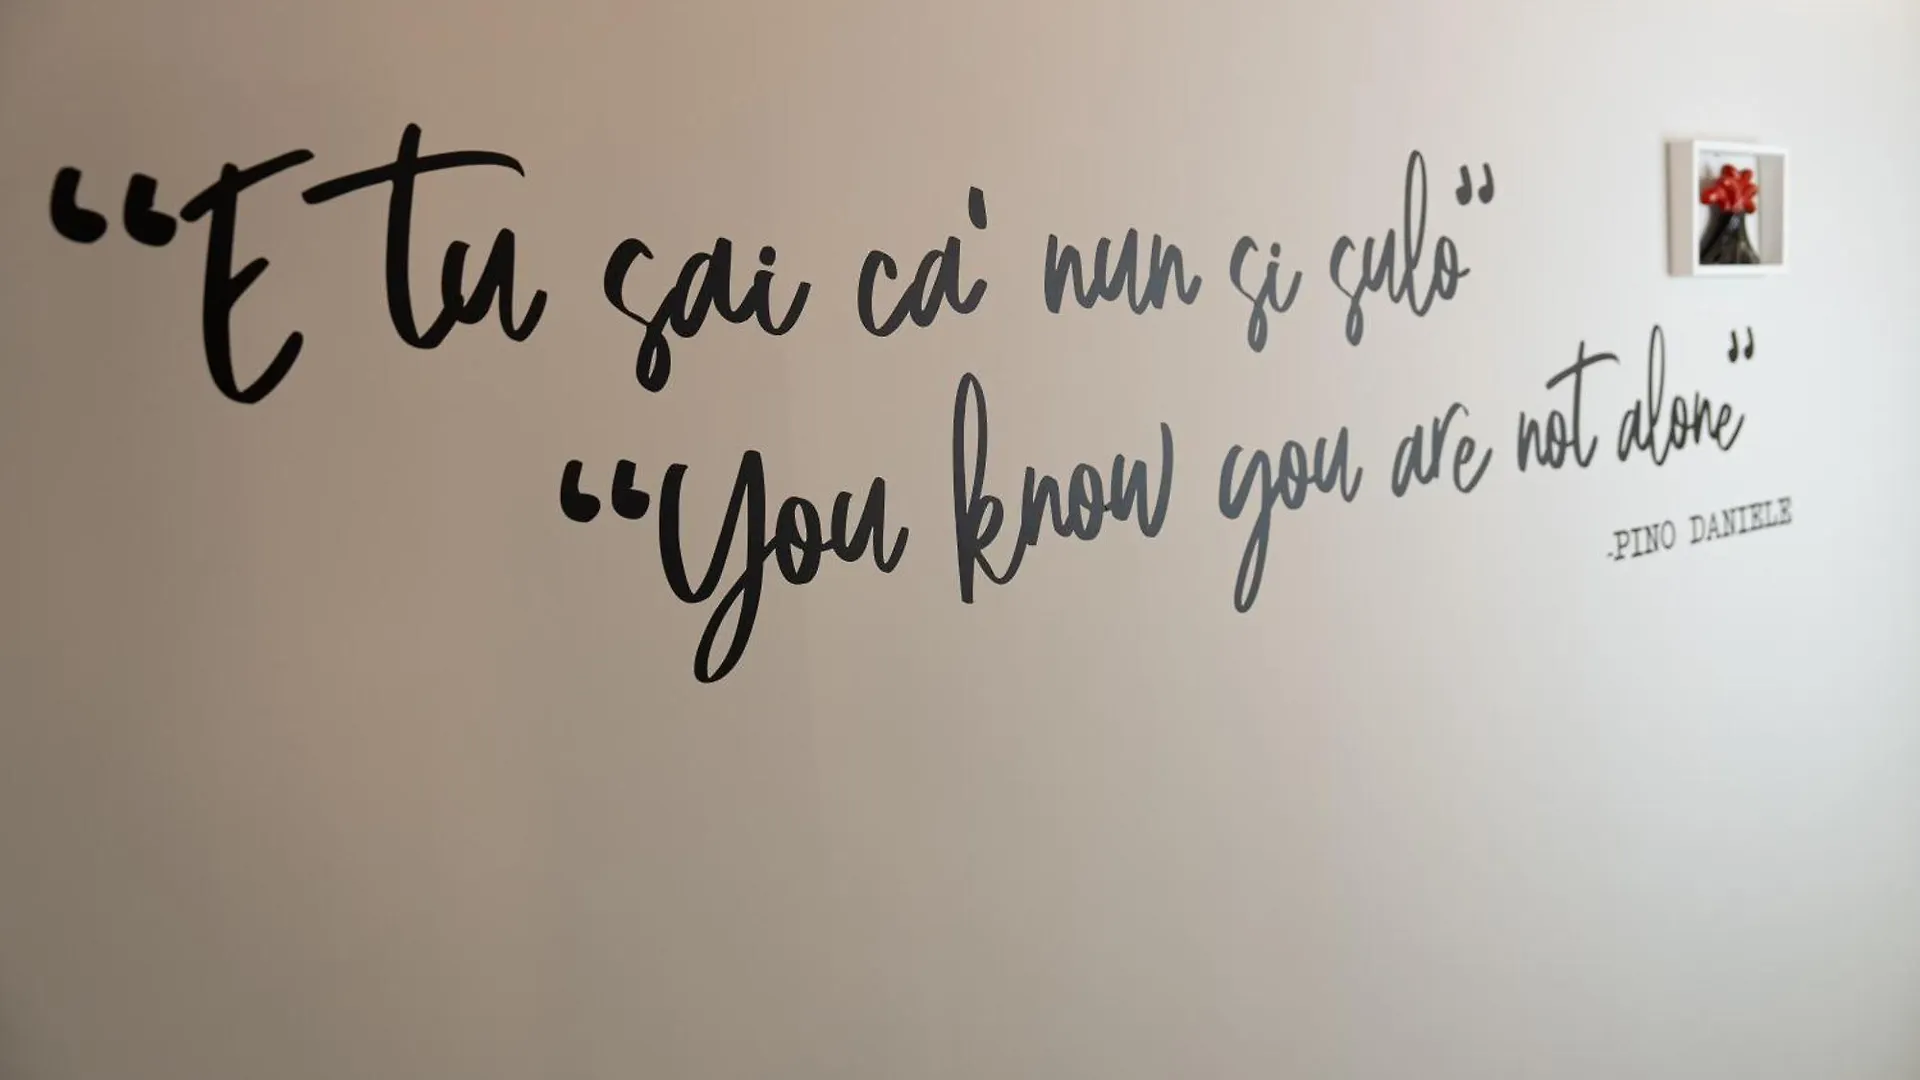 “E tu sai ca' nun si sulo”
“You know you are not alone”
-PINO DANIELE